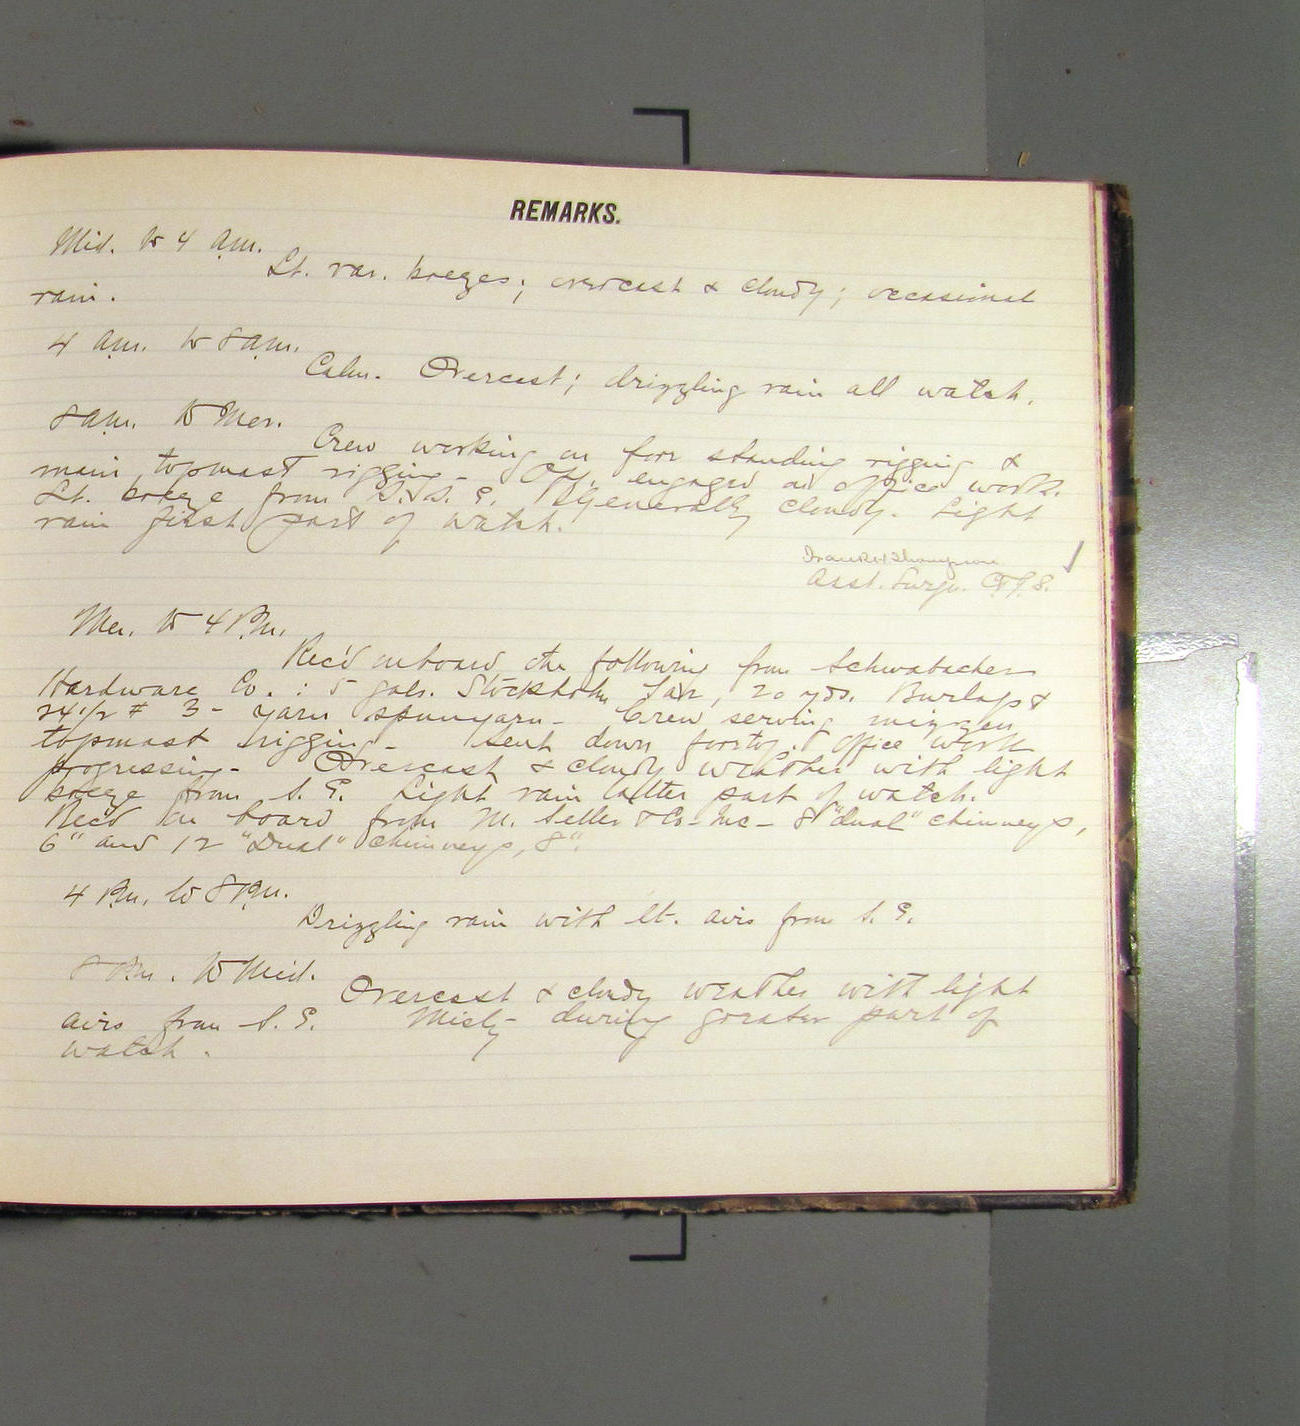 REMARKS.
Mid. to 4 a.m.
Lt. var. breezes; overcast & cloudy; occasional
rain.
4 a.m. to 8 a.m.
Calm. Overcast; drizzling rain all watch.
8 a.m. to Mer.
Crew working on fore standing rigging &
main topmast rigging - Off. engaged in office work.
Lt. breeze from S. S. E. Generally cloudy. Light
rain first part of watch.
Asst. Surgn.
Mer. to 4 P.m.
Rec'd onboard the following from Schwabacher
Hardware Co. : 5 gals. Stockholm Tar, 20 yds. Burlap &
24 1/2 # 3 - yarn spunyarn - Crew serving mizzen
topmast rigging - Sent down foretop. Office work
progressing - Overcast & cloudy weather with light
breeze from S. E. Light rain latter part of watch.
Rec'd on board from M. Seller & Co - Inc - 8 "dual" chimneys,
6" and 12 "Dual" chimneys, 8".
4 P.m. to 8 P.m.
Drizzling rain with lt. airs from S. E.
8 P.m. to Mid.
Overcast & cloudy weather with light
airs from S. E. Misty during greater part of
watch.